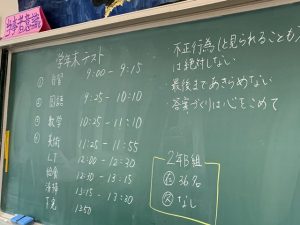 当事者意識
学年末テスト
① 自習 9:00-9:15
② 国語 9:25-10:10
③ 数学 10:25-11:10
④ 美術 11:25-11:55
LT 12:00-12:30
給食 12:30-13:15
清掃 13:15-13:30
下克 1350
・不正行為(と見られることも)
は絶対しない
・最後まであきらめない
・答案づくりは心をこめて
2年B組
㊒ 36名
㊛ なし